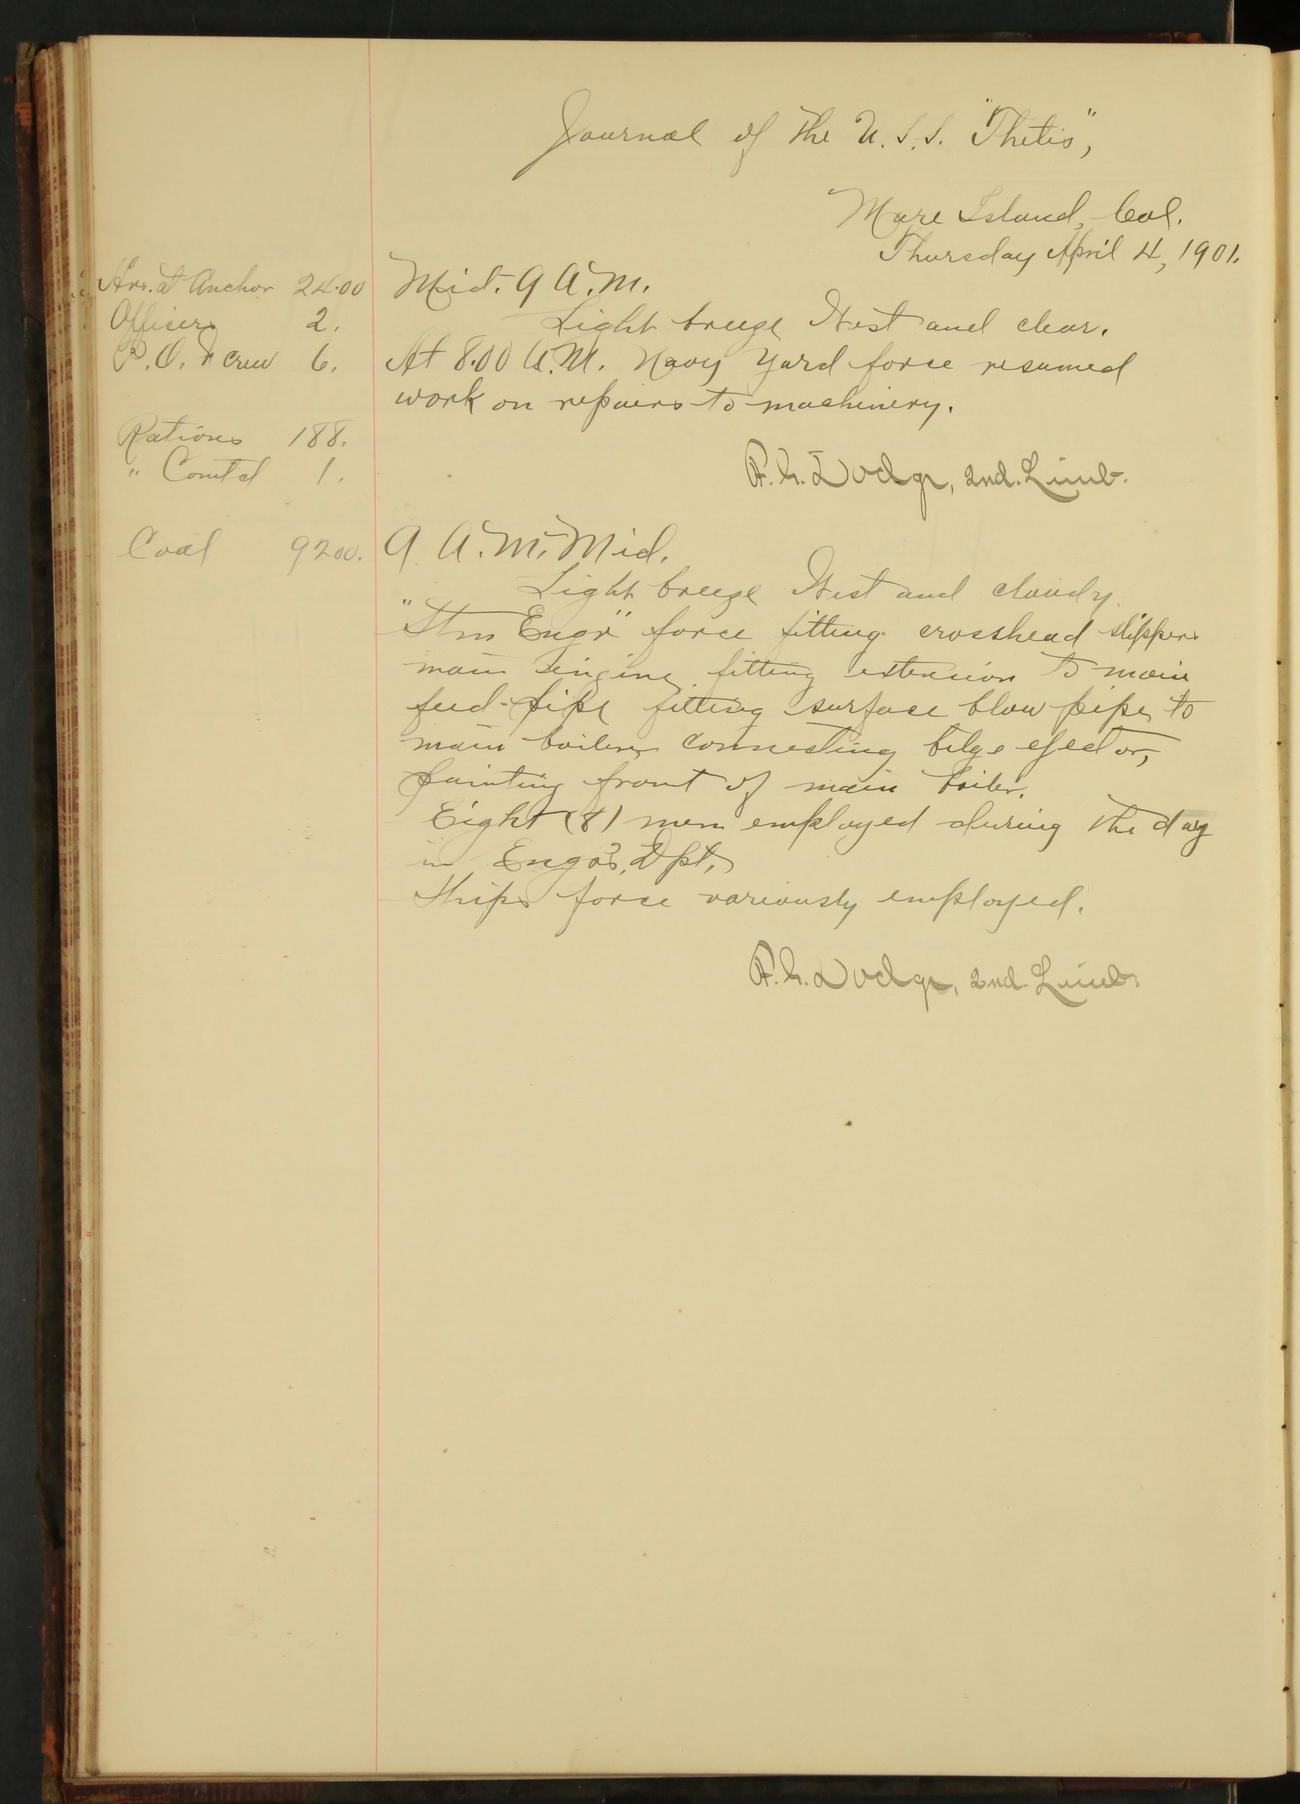 Journal of The U.S.S. "Thetis",
Mare Island, Cal.
Thursday April 4, 1901.
Hrs. at Anchor 24.00
Officers 2.
P.O. & crew 6.
Rations 188.
" Comt'd 1.
Coal 9200.
Mid. 9 A.M.
Light breeze West and clear.
At 8.00 A.M. Navy Yard force resumed
work on repairs to machinery.
Dodge, 2nd. Lieut.
9 A.M. Mid.
Light breeze West and cloudy.
"Stm Engr" force fitting crosshead slippers
main engine, fitting extension to main
feed-pipe fitting surface blow pipes to
main boilers connecting bilge ejector,
painting front of main boiler.
Eight (8) men employed during the day
in Engr's. Dpt.
Ships force variously employed.
Dodge, 2nd. Lieut.